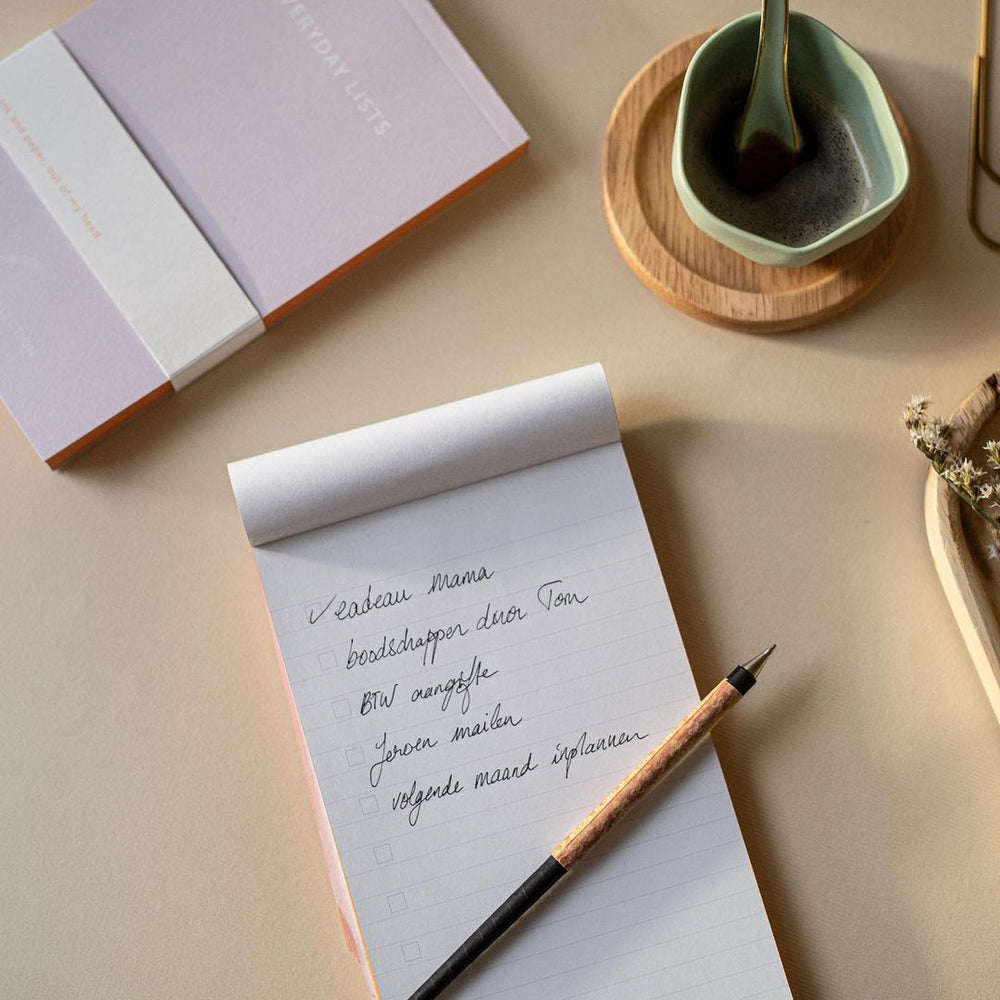 EVERYDAY LISTS
ink and paper, out of my head
cadeau mama
boodschappen door Tom
BTW aangifte
Jeroen mailen
volgende maand inplannen